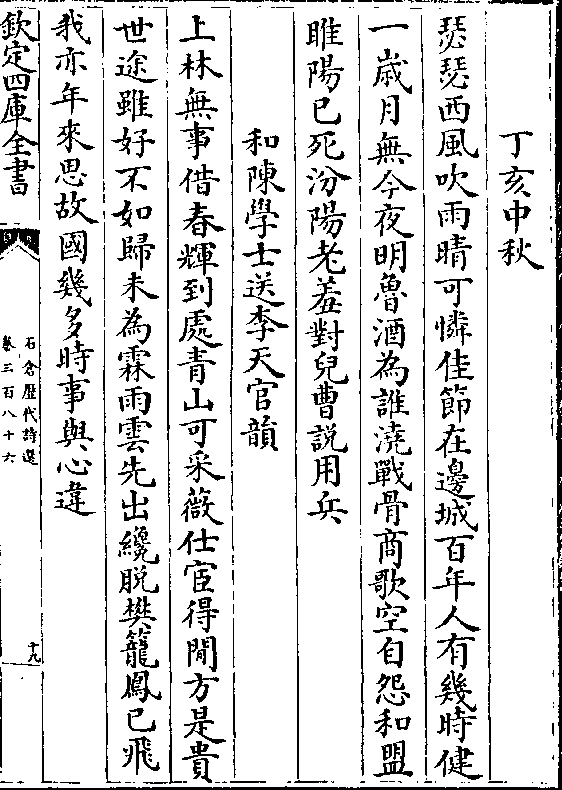 丁亥中秋
瑟瑟西風吹雨晴可憐佳節在邊城百年人有幾時健
一嵗月無今夜明魯酒為誰澆戰骨商歌空自怨和盟
睢陽已死汾陽老羞對兒曹說用兵
和陳學士送李天官韻
上林無事借春輝到處青山可采薇仕宦得閒方是貴
世途雖好不如歸未為霖雨雲先出纔脫樊籠鳳已飛
我亦年來思故國幾多時事與心違
欽定四庫全書
石倉歷代詩選
卷三百八十六
十九